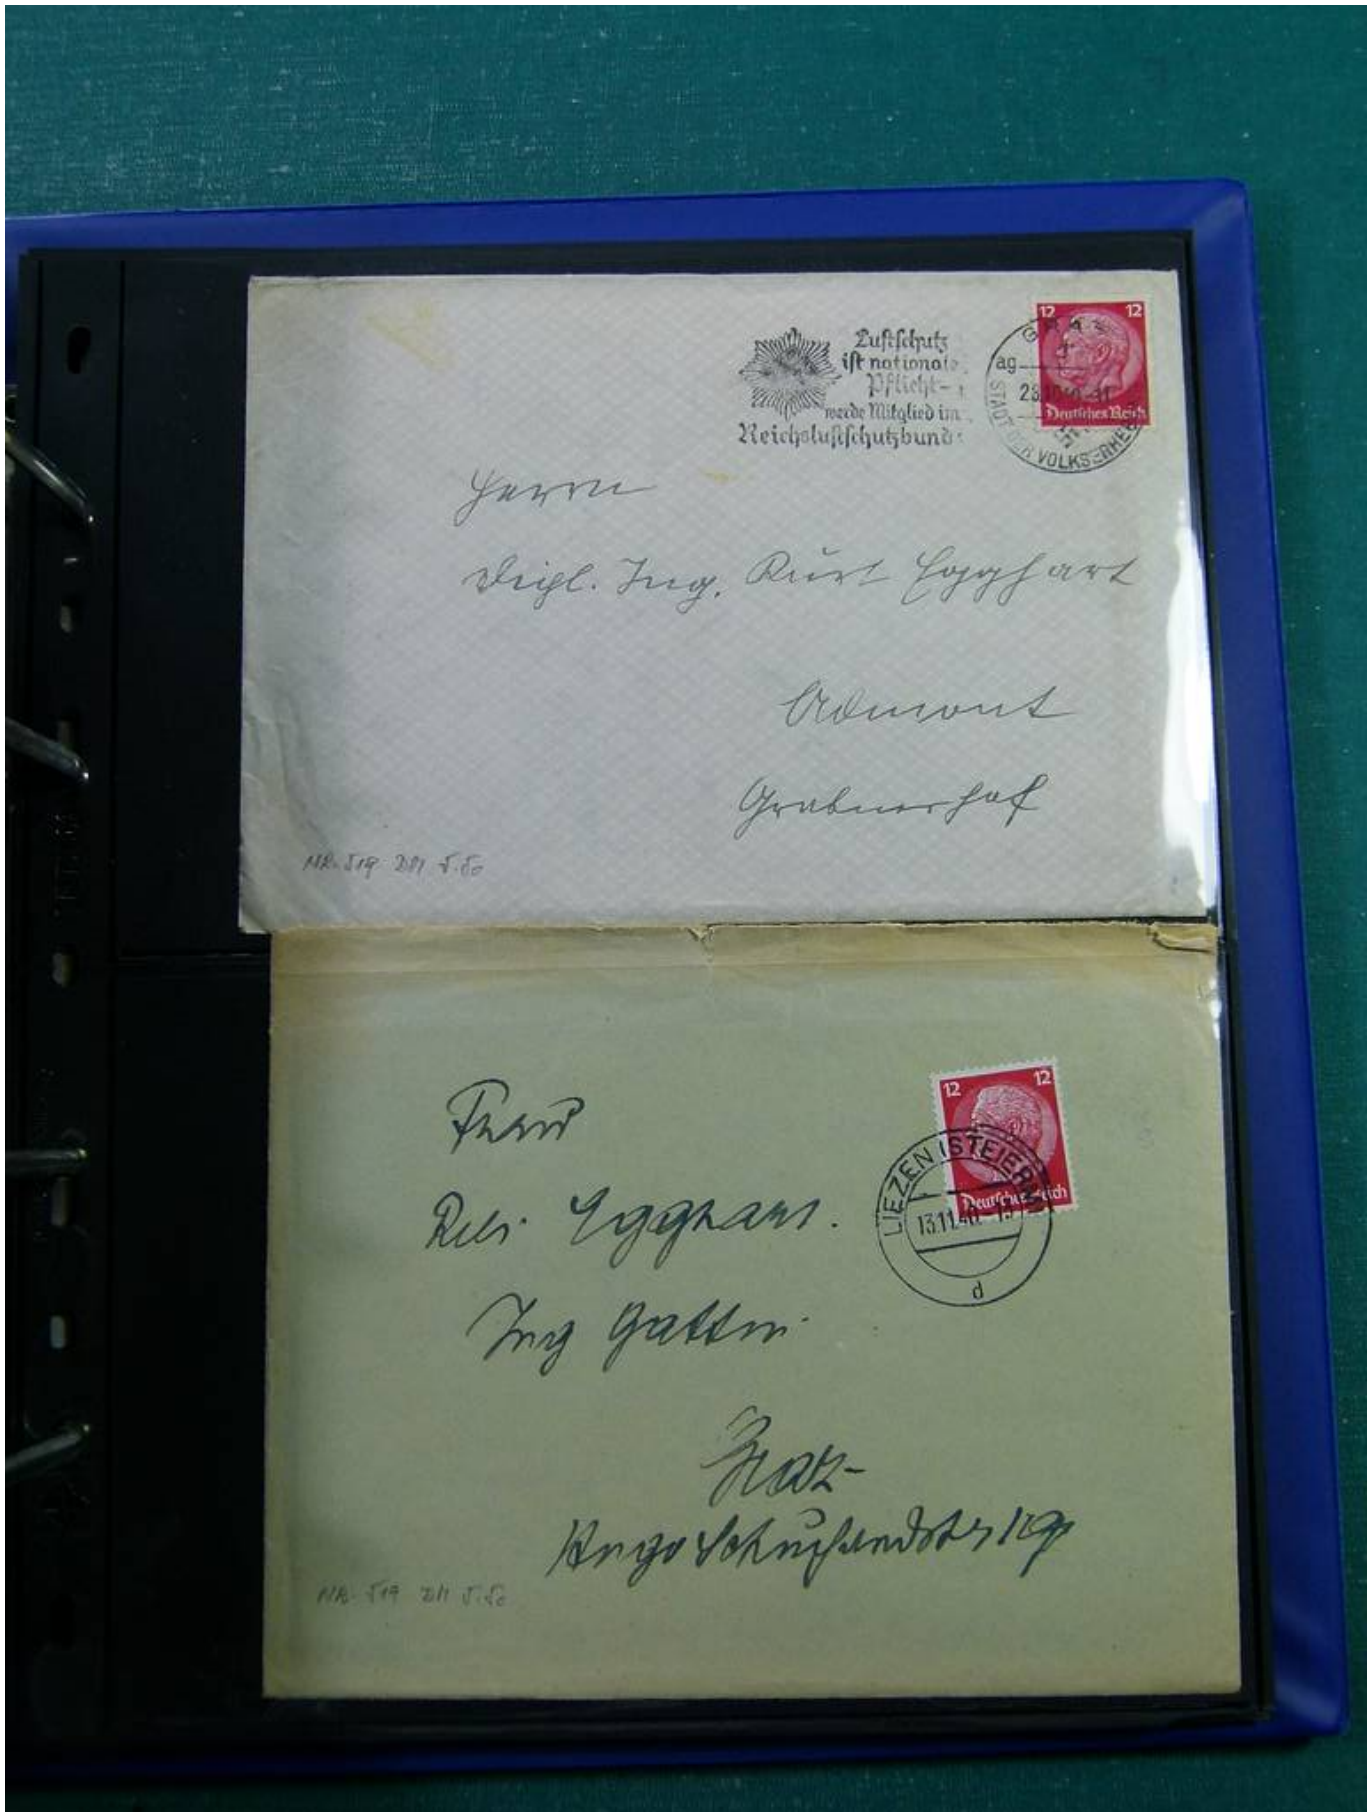 Luftschutz
ist nationale
Pflicht-
werde Mitglied im
Reichsluftschutzbund
12 12
GRAZ
ag
Deutsches Reich
STADT DER VOLKSERHEBUNG
Herrn
Dipl. Ing. Kurt Egghart
Admont
Grabnerhof
NR. 519 DM 5.50
12 12
Deutsches Reich
LIEZEN (STEIERM)
13.11.40.-13
d
Frau
Egghart.
Ing Gattin
Graz-
NR. 519 DM 5.50